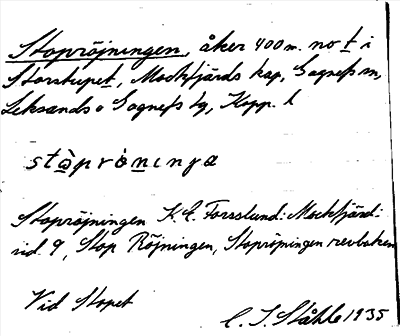 Stopröjningen, åker 400 m. no t i
Storstupet, Mockfjärds kap, Gagnefs sn,
Leksands o Gagnefs tg, Kopp. l
stòpròninga
Stopröjningen K.E. Forsslund: Mockfjärd:
sid. 9, Stop Röjningen, Stopröjningen revboken
Vid Stopet
C. I. Ståhle 1935